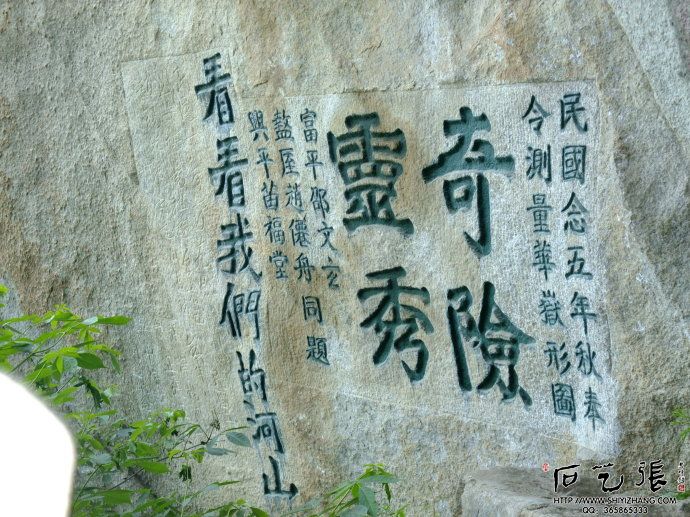 民國念五年秋奉
令測量華嶽形圖
奇險
靈秀
富平邵文玄
盩厔趙儂舟同題
興平苗福堂
看看我們的河山
石艺張
HTTP://WWW.SHIYIZHANG.COM
QQ: 365865333